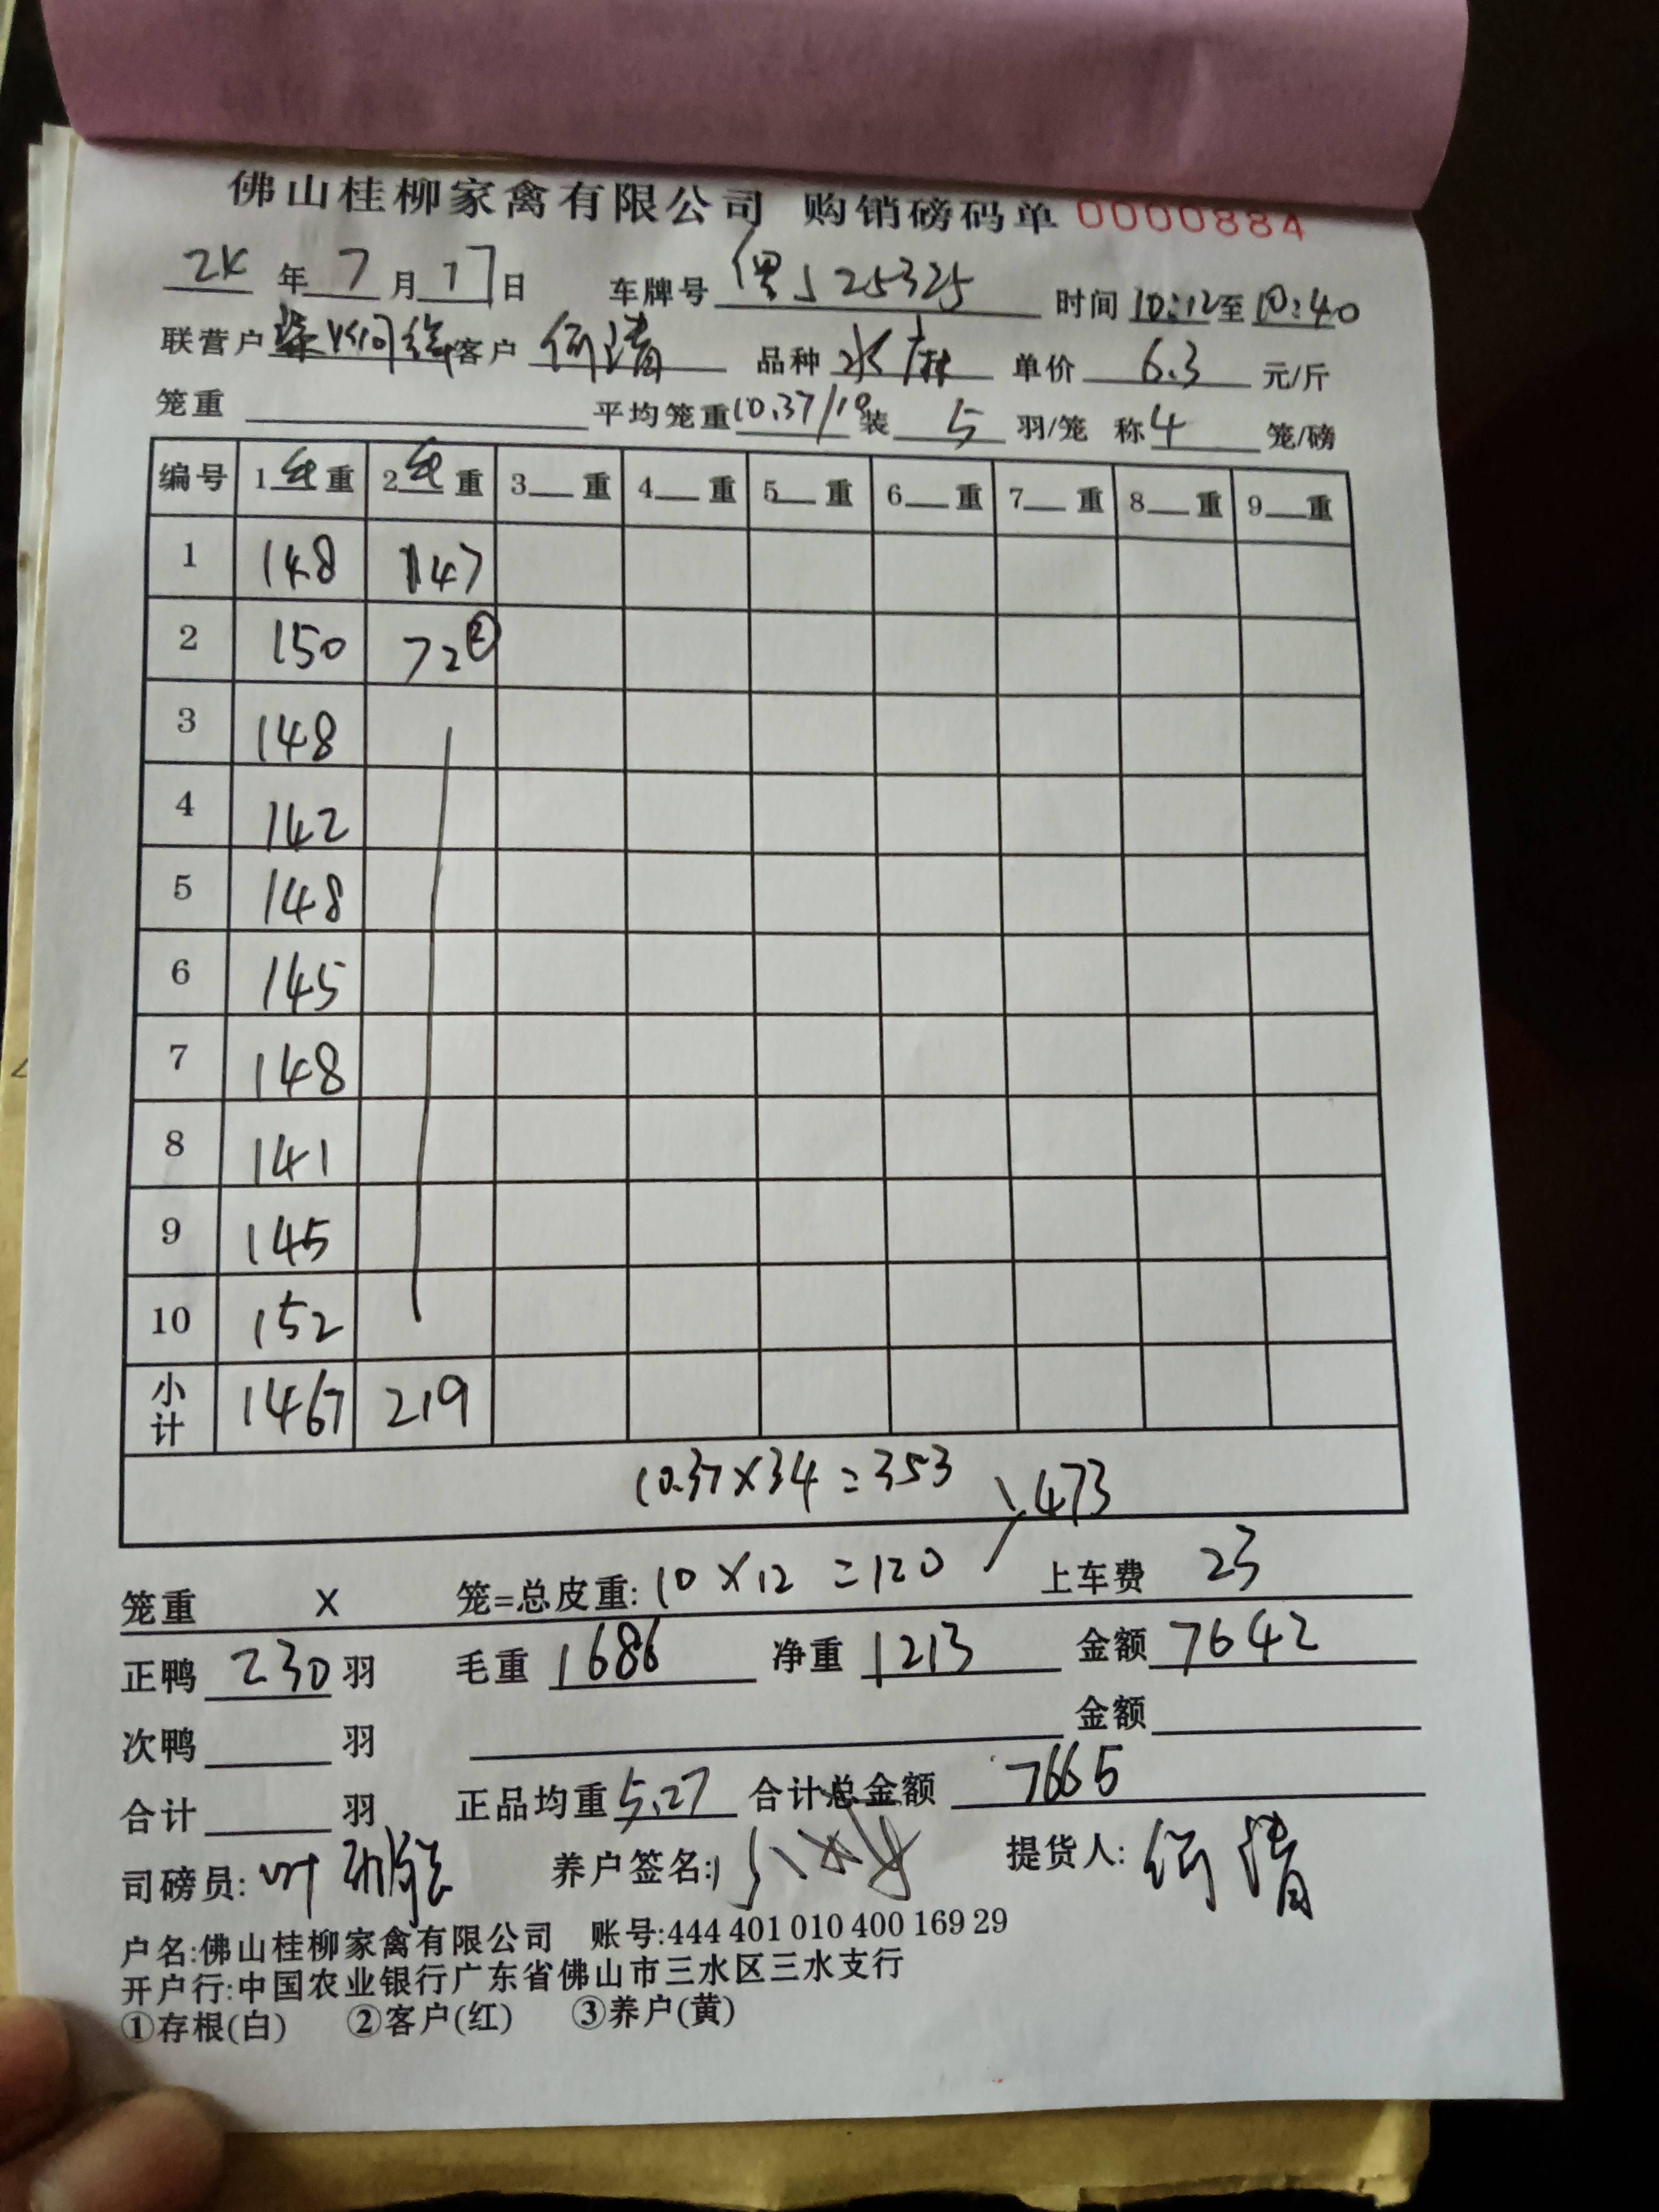 佛山桂柳家禽有限公司 购销磅码单 0000884
年 7 月 17 日 车牌号 25325 时间 10:12 至 10:40
联营户 客户 何清 品种 水麻 单价 6.3 元/斤
笼重 平均笼重 10.37/10 装 5 羽/笼 称 4 笼/磅
编号 1 纯 重 2 纯 重 3 重 4 重 5 重 6 重 7 重 8 重 9 重
1 148 147
2 150 72②
3 148
4 142
5 148
6 145
7 148
8 141
9 145
10 152
小计 1467 219
10.37×34=353 473
笼重 × 笼=总皮重: 10×12=120 上车费 23
正鸭 230 羽 毛重 1686 净重 1213 金额 7642
次鸭 羽 金额
合计 羽 正品均重 5.27 合计总金额 7665
司磅员: 叶 养户签名: 提货人: 何清
户名:佛山桂柳家禽有限公司 账号:444 401 010 400 169 29
开户行:中国农业银行广东省佛山市三水区三水支行
①存根(白) ②客户(红) ③养户(黄)